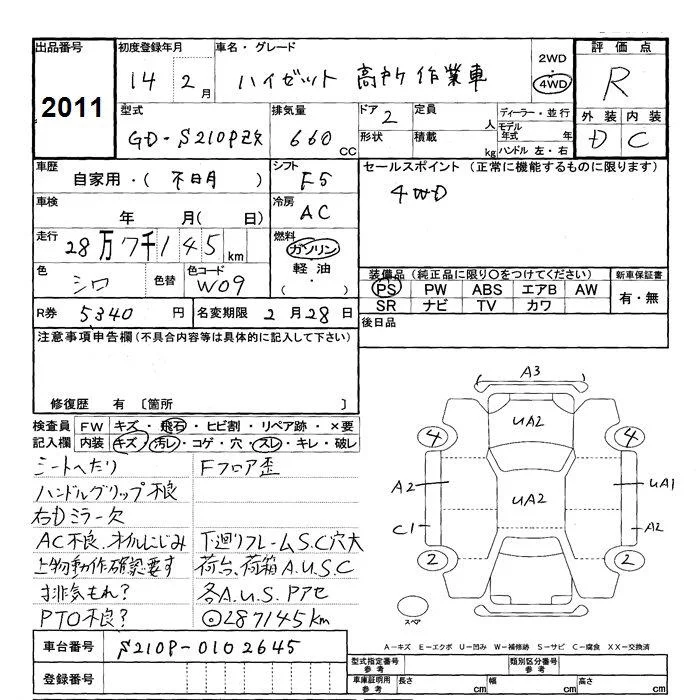 出品番号 2011
初度登録年月 14 2月
車名・グレード ハイゼット 高所作業車
2WD
4WD
評価点 R
外装 内装
D C
型式 GD-S210P改
排気量 660 CC
ドア 2
定員 人
ディーラー・並行
モデル年式 年
形状
積載 kg
ハンドル 左・右
車歴 自家用・( 不明 )
シフト F5
セールスポイント (正常に機能するものに限ります)
4WD
車検 年 月( 日)
冷房 AC
走行 28万7千145km
燃料 ガソリン
軽油
・( )
色 シロ
色替
色コード W09
装備品 (純正品に限り○をつけてください)
新車保証書
PS PW ABS エアB AW
有・無
SR ナビ TV カワ
R券 5340円
名変期限 2月28日
後日品
注意事項申告欄(不具合内容等は具体的に記入して下さい)
修復歴 有 〔箇所 〕
検査員 FW キズ・飛石・ヒビ割・リペア跡・×要
記入欄 内装 キズ・汚レ・コゲ・穴・スレ・キレ・破レ
シートへたり Fフロア歪
ハンドルグリップ不良
右Dミラー欠
AC不良、オイルにじみ 下廻りフレームS.C穴大
上物動作確認要す 荷台、荷箱A.U.S.C
排気もれ? 各A.U.S.Pアセ
PTO不良? ◎287145km
A3
UA2
4 4
A2 UA2 UA1
C1 A2
2 2
スペア
A-キズ E-エクボ U-凹み W-補修跡 S-サビ C-腐食 XX-交換済
車台番号 S210P-0102645
登録番号
型式指定番号 参考
類別区分番号 参考
車庫証明用 参考
長さ cm 幅 cm 高さ cm